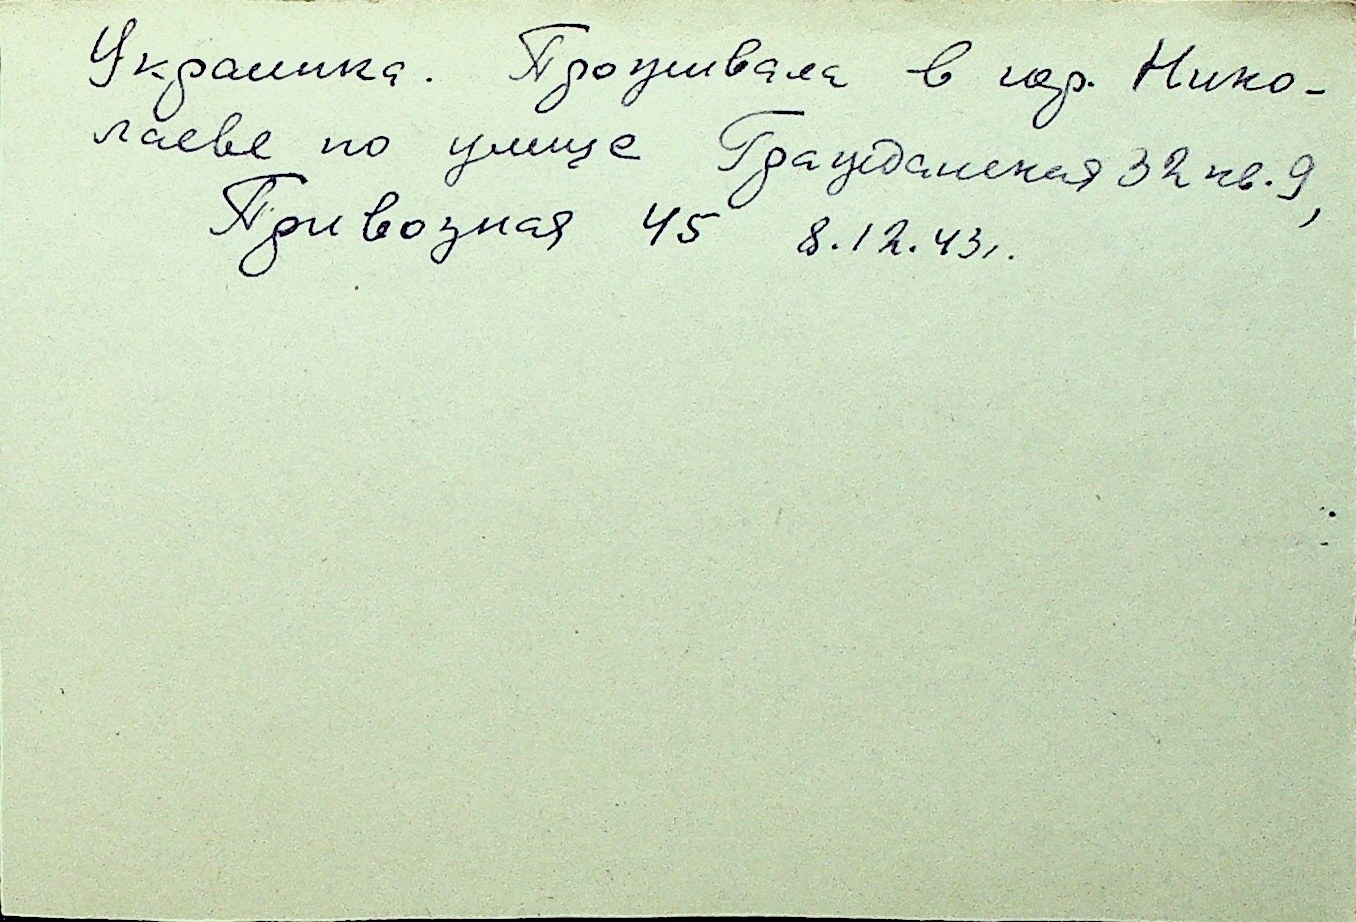 Украинка. Проживала в гор. Нико-
лаеве по улице Гражданская 32 кв. 9,
Привозная 45 8.12.43г.